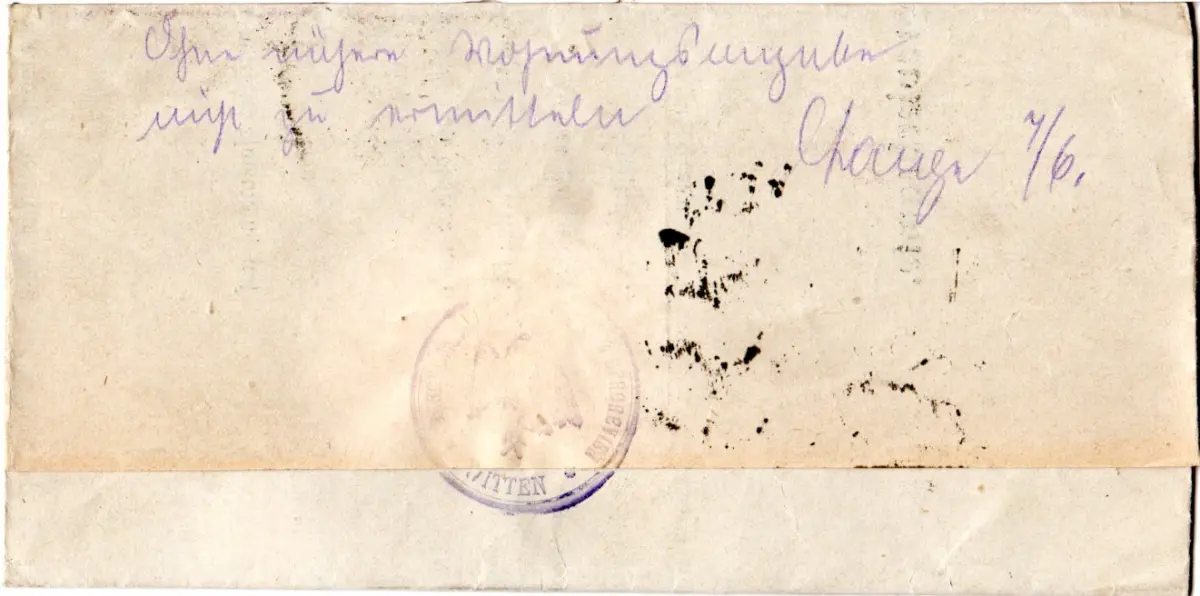 Ohne nähere Wohnungsangabe
nicht zu ermitteln
7/6.
WITTEN